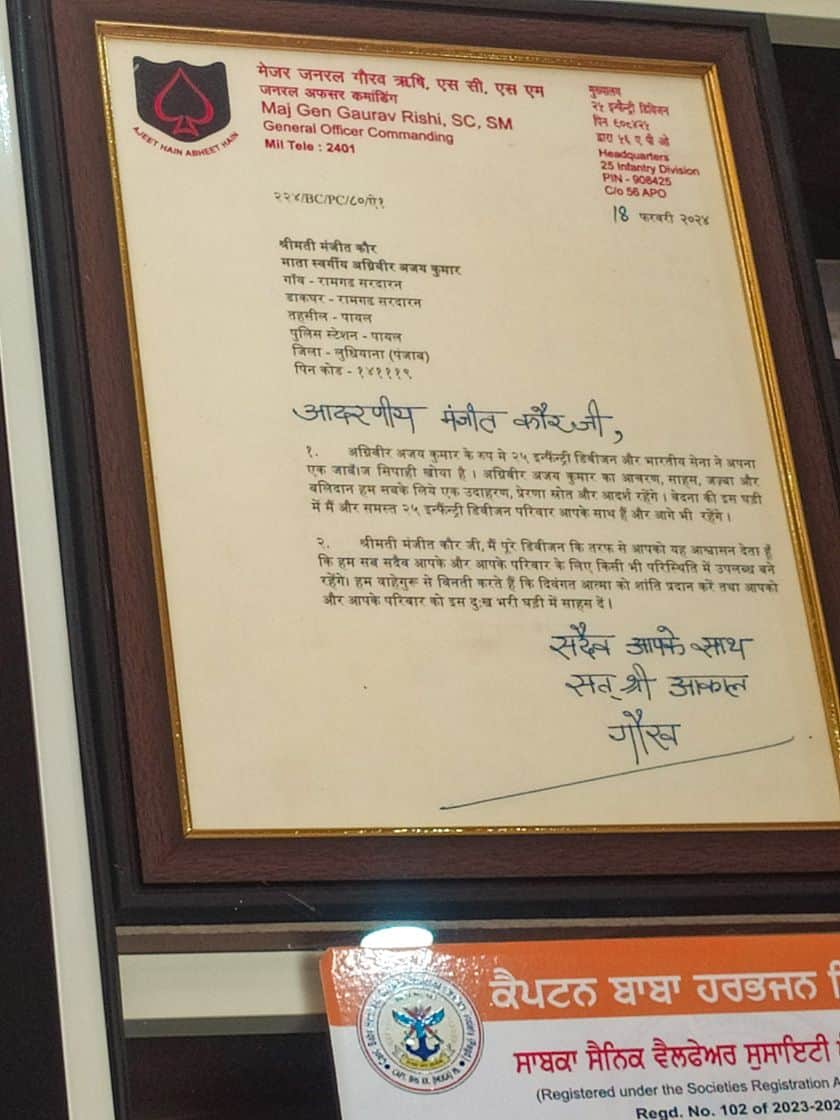 AJEET HAIN ABHEET HAIN
मेजर जनरल गौरव ऋषि, एस सी, एस एम
जनरल अफसर कमांडिंग
Maj Gen Gaurav Rishi, SC, SM
General Officer Commanding
Mil Tele : 2401
मुख्यालय
२५ इन्फैन्ट्री डिविजन
पिन ९०८४२५
द्वारा ५६ ए पी ओ
Headquarters
25 Infantry Division
PIN - 908425
C/o 56 APO
२२४/BC/PC/८०/ऐ१
18 फरवरी २०२४
श्रीमती मंजीत कौर
माता स्वर्गीय अग्निवीर अजय कुमार
गाँव - रामगड सरदारन
डाकघर - रामगड सरदारन
तहसील - पायल
पुलिस स्टेशन - पायल
जिला - लुधियाना (पंजाब)
पिन कोड - १४१११९
आदरणीय मंजीत कौर जी,
१. अग्निवीर अजय कुमार के रुप मे २५ इन्फैंट्री डिवीजन और भारतीय सेना ने अपना
एक जाबाँज सिपाही खोया है । अग्निवीर अजय कुमार का आचरण, साहस, जज़्बा और
बलिदान हम सबके लिये एक उदाहरण, प्रेरणा स्रोत और आदर्श रहेंगे । वेदना की इस घड़ी
में मैं और समस्त २५ इन्फैंट्री डिवीजन परिवार आपके साथ हैं और आगे भी रहेंगे ।
२. श्रीमती मंजीत कौर जी, मैं पूरे डिवीजन कि तरफ से आपको यह आश्वासन देता हूँ
कि हम सब सदैव आपके और आपके परिवार के लिए किसी भी परिस्थिति में उपलब्ध बने
रहेंगे। हम वाहेगुरू से विनती करते हैं कि दिवंगत आत्मा को शांति प्रदान करें तथा आपको
और आपके परिवार को इस दुःख भरी घड़ी में साहस दें ।
सदैव आपके साथ
सत् श्री आकाल
गौरव
ਕੈਪਟਨ ਬਾਬਾ ਹਰਭਜਨ
ਸਾਬਕਾ ਸੈਨਿਕ ਵੈਲਫੇਅਰ ਸੁਸਾਇਟੀ
(Registered under the Societies Registration
Regd. No. 102 of 2023-202